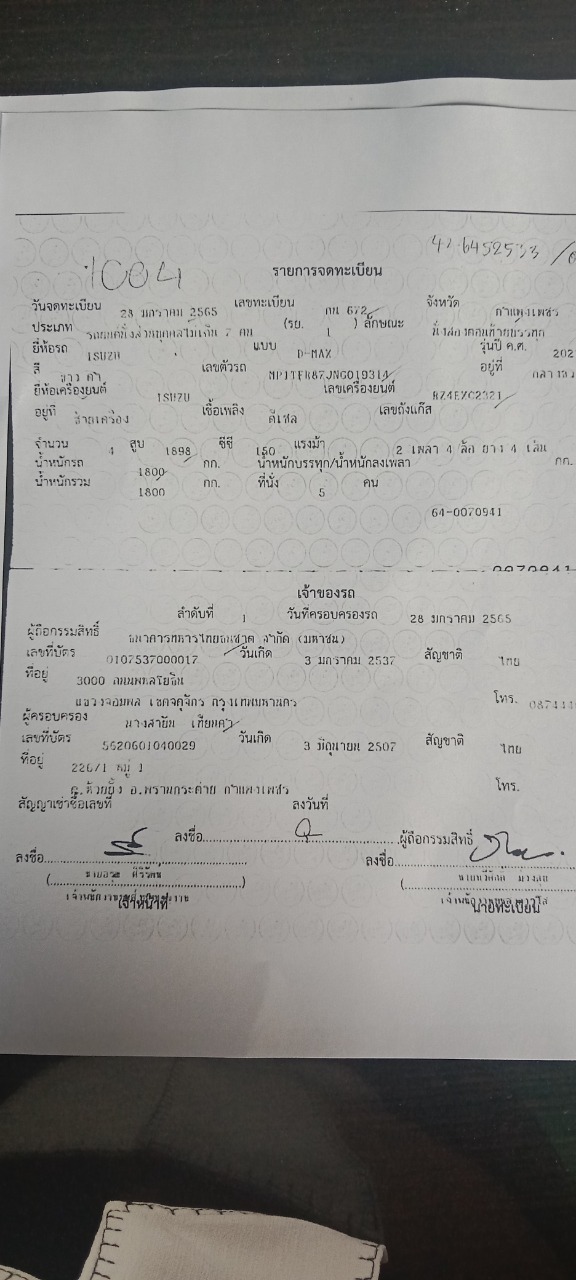 42-6452533 /
1004
รายการจดทะเบียน
วันจดทะเบียน 28 มกราคม 2565 เลขทะเบียน กน 672 จังหวัด กำแพงเพชร
ประเภท รถยนต์นั่งส่วนบุคคลไม่เกิน 7 คน (รย. 1 ) ลักษณะ นั่งสองตอนท้ายบรรทุก
ยี่ห้อรถ ISUZU แบบ D-MAX รุ่นปี ค.ศ. 202
สี ขาว ดำ เลขตัวรถ MP1TFR87JNG019314 อยู่ที่
ยี่ห้อเครื่องยนต์ ISUZU เลขเครื่องยนต์ RZ4EXC2321
อยู่ที่ ซ้ายเครื่อง เชื้อเพลิง ดีเซล เลขถังแก๊ส
จำนวน 4 สูบ 1898 ซีซี 150 แรงม้า 2 เพลา 4 ล้อ ยาง 4 เส้น
น้ำหนักรถ 1800 กก. น้ำหนักบรรทุก/น้ำหนักลงเพลา กก.
น้ำหนักรวม 1800 กก. ที่นั่ง 5 คน
64-0070941
0070941
เจ้าของรถ
ลำดับที่ 1 วันที่ครอบครองรถ 28 มกราคม 2565
ผู้ถือกรรมสิทธิ์ ธนาคารทหารไทยธนชาต จำกัด (มหาชน)
เลขที่บัตร 0107537000017 วันเกิด 3 มกราคม 2537 สัญชาติ ไทย
ที่อยู่ 3000 ถนนพหลโยธิน
แขวงจอมพล เขตจตุจักร กรุงเทพมหานคร โทร. 087444
ผู้ครอบครอง นางสายัน เทียนคำ
เลขที่บัตร 5620601040029 วันเกิด 3 มิถุนายน 2507 สัญชาติ ไทย
ที่อยู่ 226/1 หมู่ 1
ต.ห้วยยั้ง อ.พรานกระต่าย กำแพงเพชร โทร.
สัญญาเช่าซื้อเลขที่ ลงวันที่
ลงชื่อ ผู้ถือกรรมสิทธิ์
ลงชื่อ ลงชื่อ
เจ้าหน้าที่ นายทะเบียน